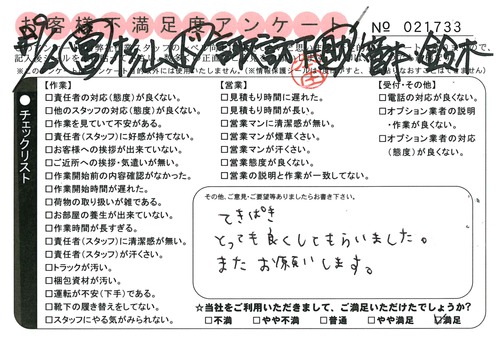 お客様不満足度アンケート
№ 021733
チェックリスト
【作業】
□責任者の対応(態度)が良くない。
□他のスタッフの対応(態度)が良くない。
□作業を見ていて不安がある。
□責任者(スタッフ)に好感が持てない。
□お客様への挨拶が出来ていない。
□ご近所への挨拶・気遣いが無い。
□作業開始前の内容確認がなかった。
□作業開始時間が遅れた。
□荷物の取り扱いが雑である。
□お部屋の養生が出来ていない。
□作業時間が長すぎる。
□責任者(スタッフ)に清潔感が無い。
□責任者(スタッフ)が汗くさい。
□トラックが汚い。
□梱包資材が汚い。
□運転が不安(下手)である。
□靴下の履き替えをしてない。
□スタッフにやる気がみられない。
【営業】
□見積もり時間に遅れた。
□見積もり時間が長い。
□営業マンに清潔感が無い。
□営業マンが煙草くさい。
□営業マンが汗くさい。
□営業態度が良くない。
□営業の説明と作業が一致してない。
【受付・その他】
□電話の対応が良くない。
□オプション業者の説明
・作業が良くない。
□オプション業者の対応
(態度)が良くない。
その他、ご意見・ご要望等ありましたらお書き下さい。
てきぱき
とっても良くしてもらいました。
また お願いします。
☆当社をご利用いただきまして、ご満足いただけたでしょうか?
□不満 □やや不満 □普通 □やや満足 ☑満足